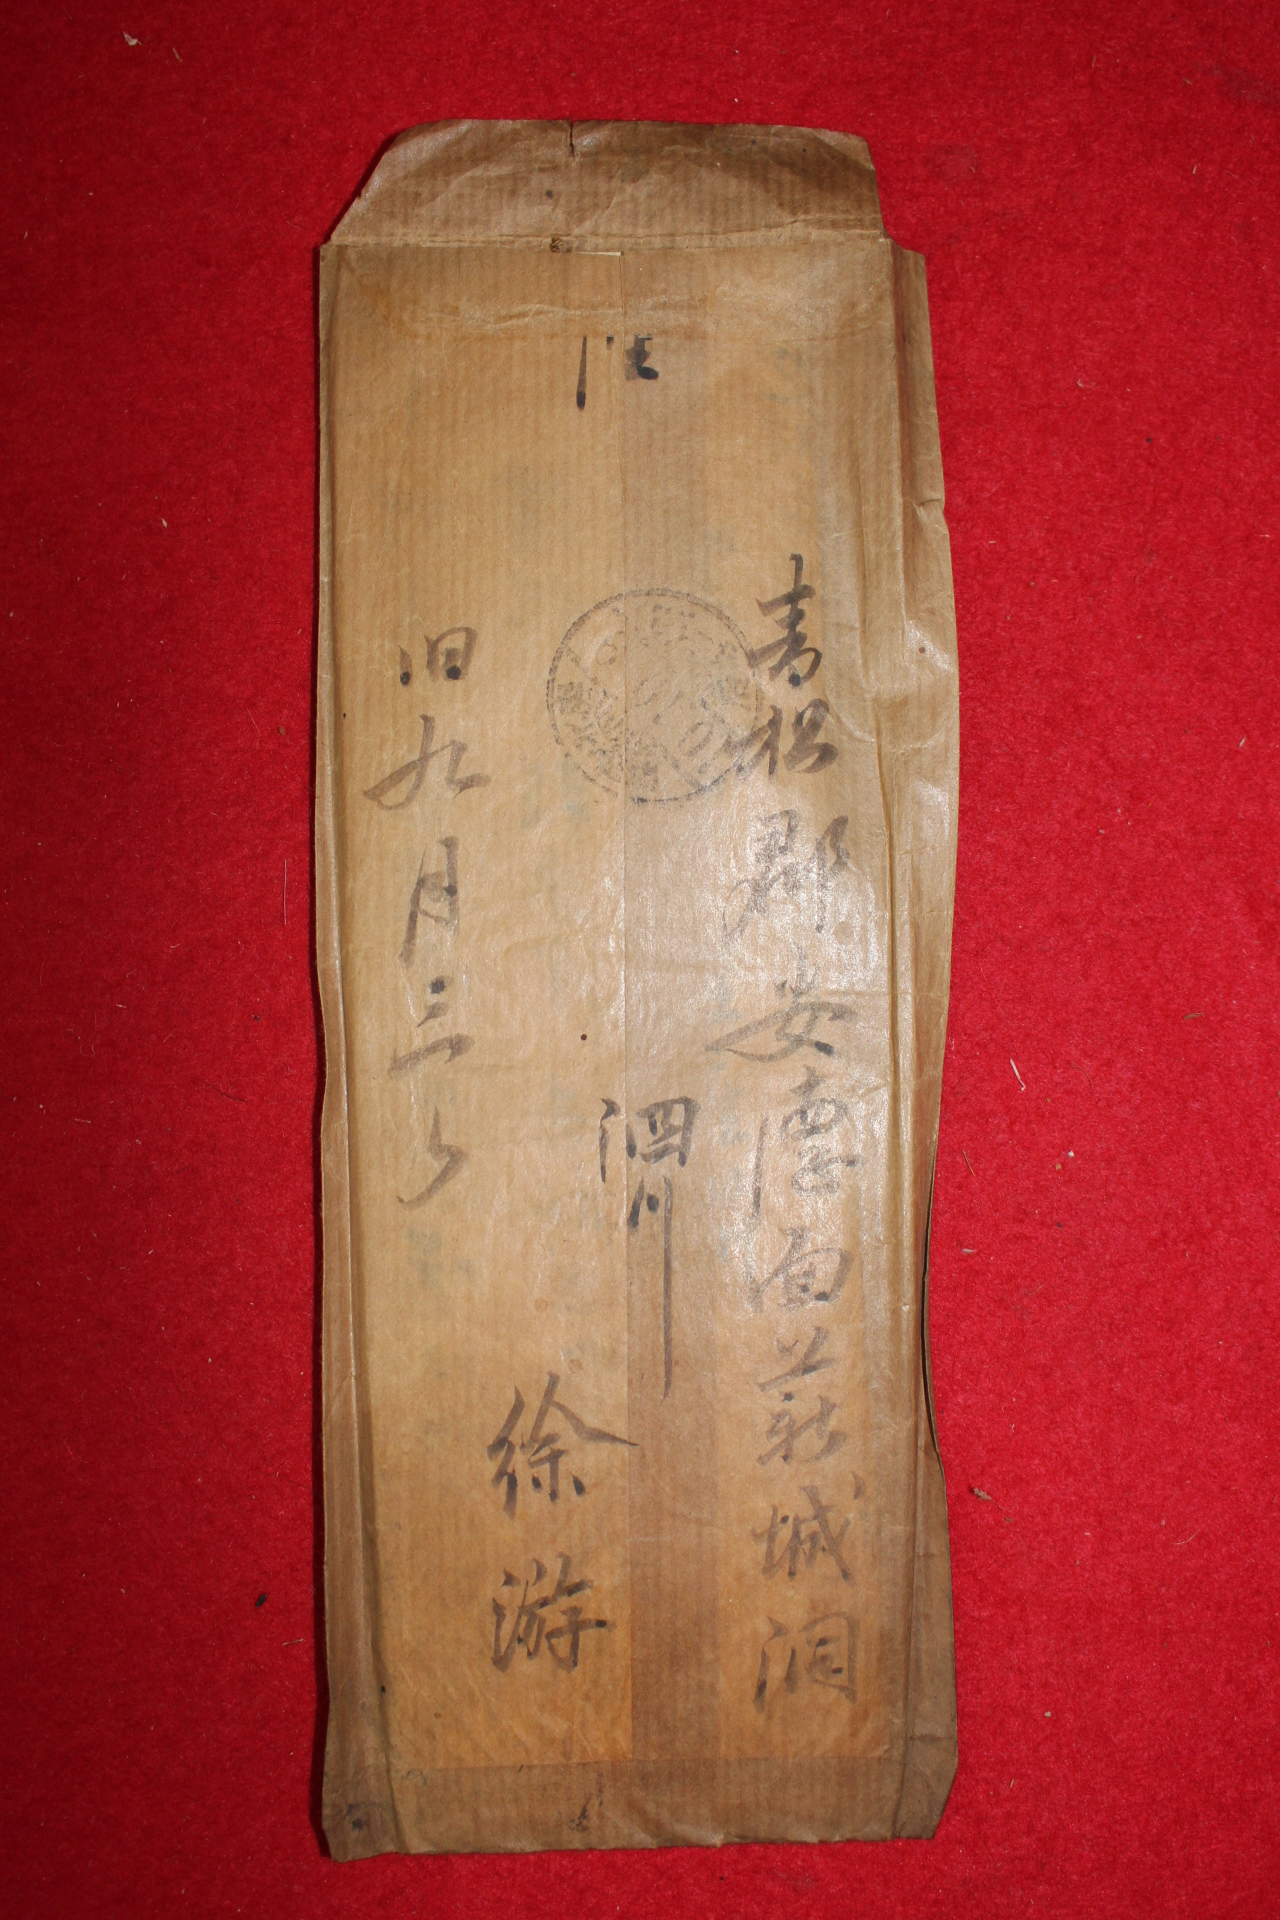 青松郡安德面薪城洞
泗川
徐游
旧九月三日